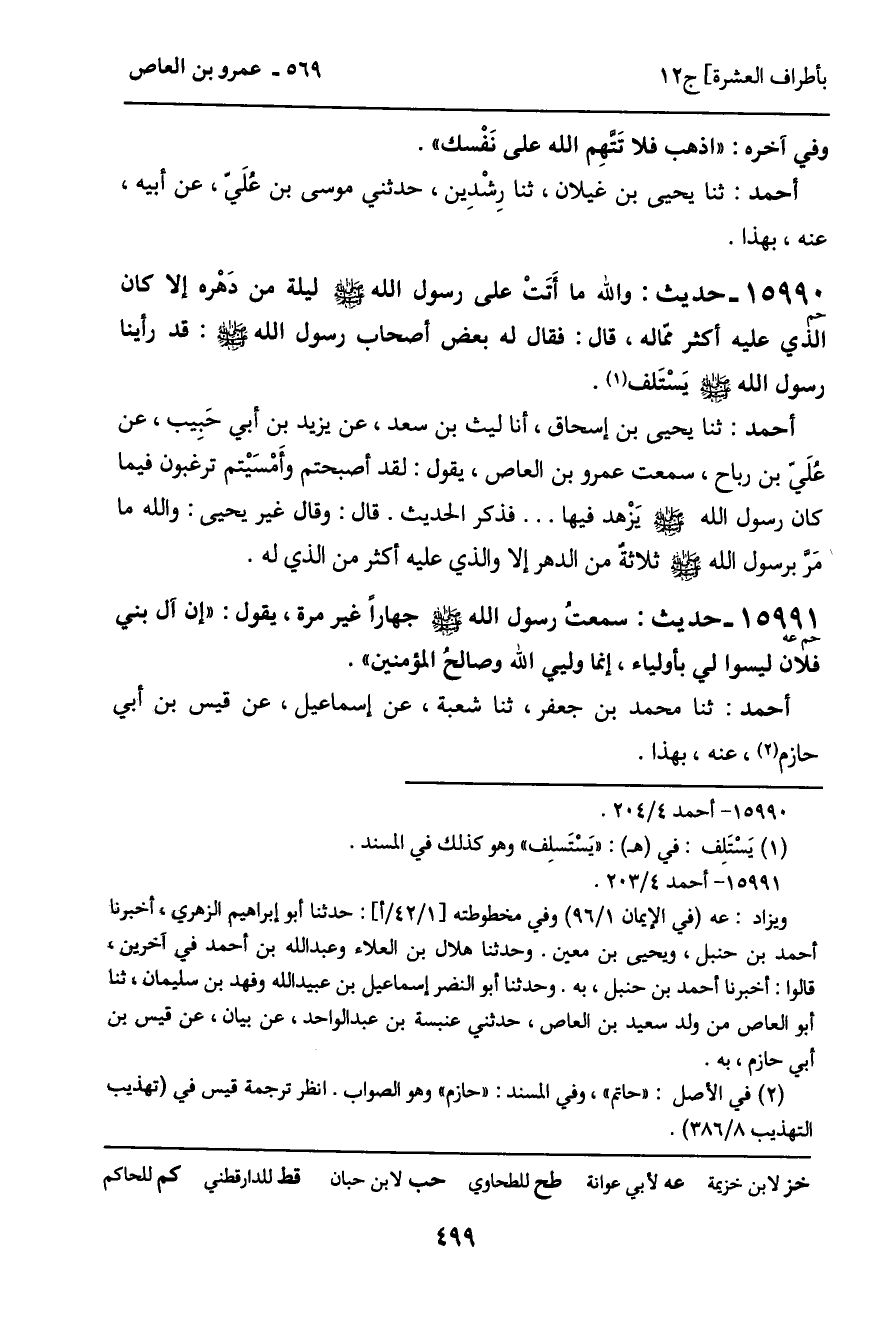 بأطراف العشرة] ج١٢
٥٦٩ ـ عمرو بن العاص
وفي آخره : «اذهب فلا تَتَّهِم الله على نَفْسك» .
أحمد : ثنا يحيى بن غيلان ، ثنا رِشْدِين ، حدثني موسى بن عُلَيّ ، عن أبيه ،
عنه ، بهذا .
١٥٩٩٠ ـ حديث : والله ما أَتَتْ على رسول الله ﷺ ليلة من دَهْره إلا كان
حم
الذي عليه أكثر ممّاله ، قال : فقال له بعض أصحاب رسول الله ﷺ : قد رأينا
رسول الله ﷺ يَسْتَلف(١) .
أحمد : ثنا يحيى بن إسحاق ، أنا ليث بن سعد ، عن يزيد بن أبي حَبِيب ، عن
عُلَيّ بن رباح ، سمعت عمرو بن العاص ، يقول : لقد أصبحتم وأَمْسَيْتم ترغبون فيما
كان رسول الله ﷺ يَزْهد فيها ... فذكر الحديث . قال : وقال غير يحيى : والله ما
مَرَّ برسول الله ﷺ ثلاثةٌ من الدهر إلا والذي عليه أكثر من الذي له .
١٥٩٩١ ـ حديث : سمعتُ رسول الله ﷺ جهاراً غير مرة ، يقول : «إن آل بني
حم عه
فلان ليسوا لي بأولياء ، إنما وليي الله وصالحُ المؤمنين» .
أحمد : ثنا محمد بن جعفر ، ثنا شعبة ، عن إسماعيل ، عن قيس بن أبي
حازم(٢) ، عنه ، بهذا .
١٥٩٩٠ – أحمد ٢٠٤/٤ .
(١) يَسْتَلِف : في (هـ) : «يَسْتَسلِف» وهو كذلك في المسند .
١٥٩٩١ – أحمد ٢٠٣/٤ .
ويزاد : عه (في الإيمان ٩٦/١) وفي مخطوطته [٤٢/١/أ] : حدثنا أبو إبراهيم الزهري ، أخبرنا
أحمد بن حنبل ، ويحيى بن معين . وحدثنا هلال بن العلاء وعبدالله بن أحمد في آخرين ،
قالوا : أخبرنا أحمد بن حنبل ، به . وحدثنا أبو النضر إسماعيل بن عبيدالله وفهد بن سليمان ، ثنا
أبو العاص من ولد سعيد بن العاص ، حدثني عنبسة بن عبدالواحد ، عن بيان ، عن قيس بن
أبي حازم ، به .
(٢) في الأصل : «حاتم» ، وفي المسند : «حازم» وهو الصواب . انظر ترجمة قيس في (تهذيب
التهذيب ٣٨٦/٨) .
خز لابن خزيمة عه لأبي عوانة طح للطحاوي حب لابن حبان قط للدارقطني كم للحاكم
٤٩٩